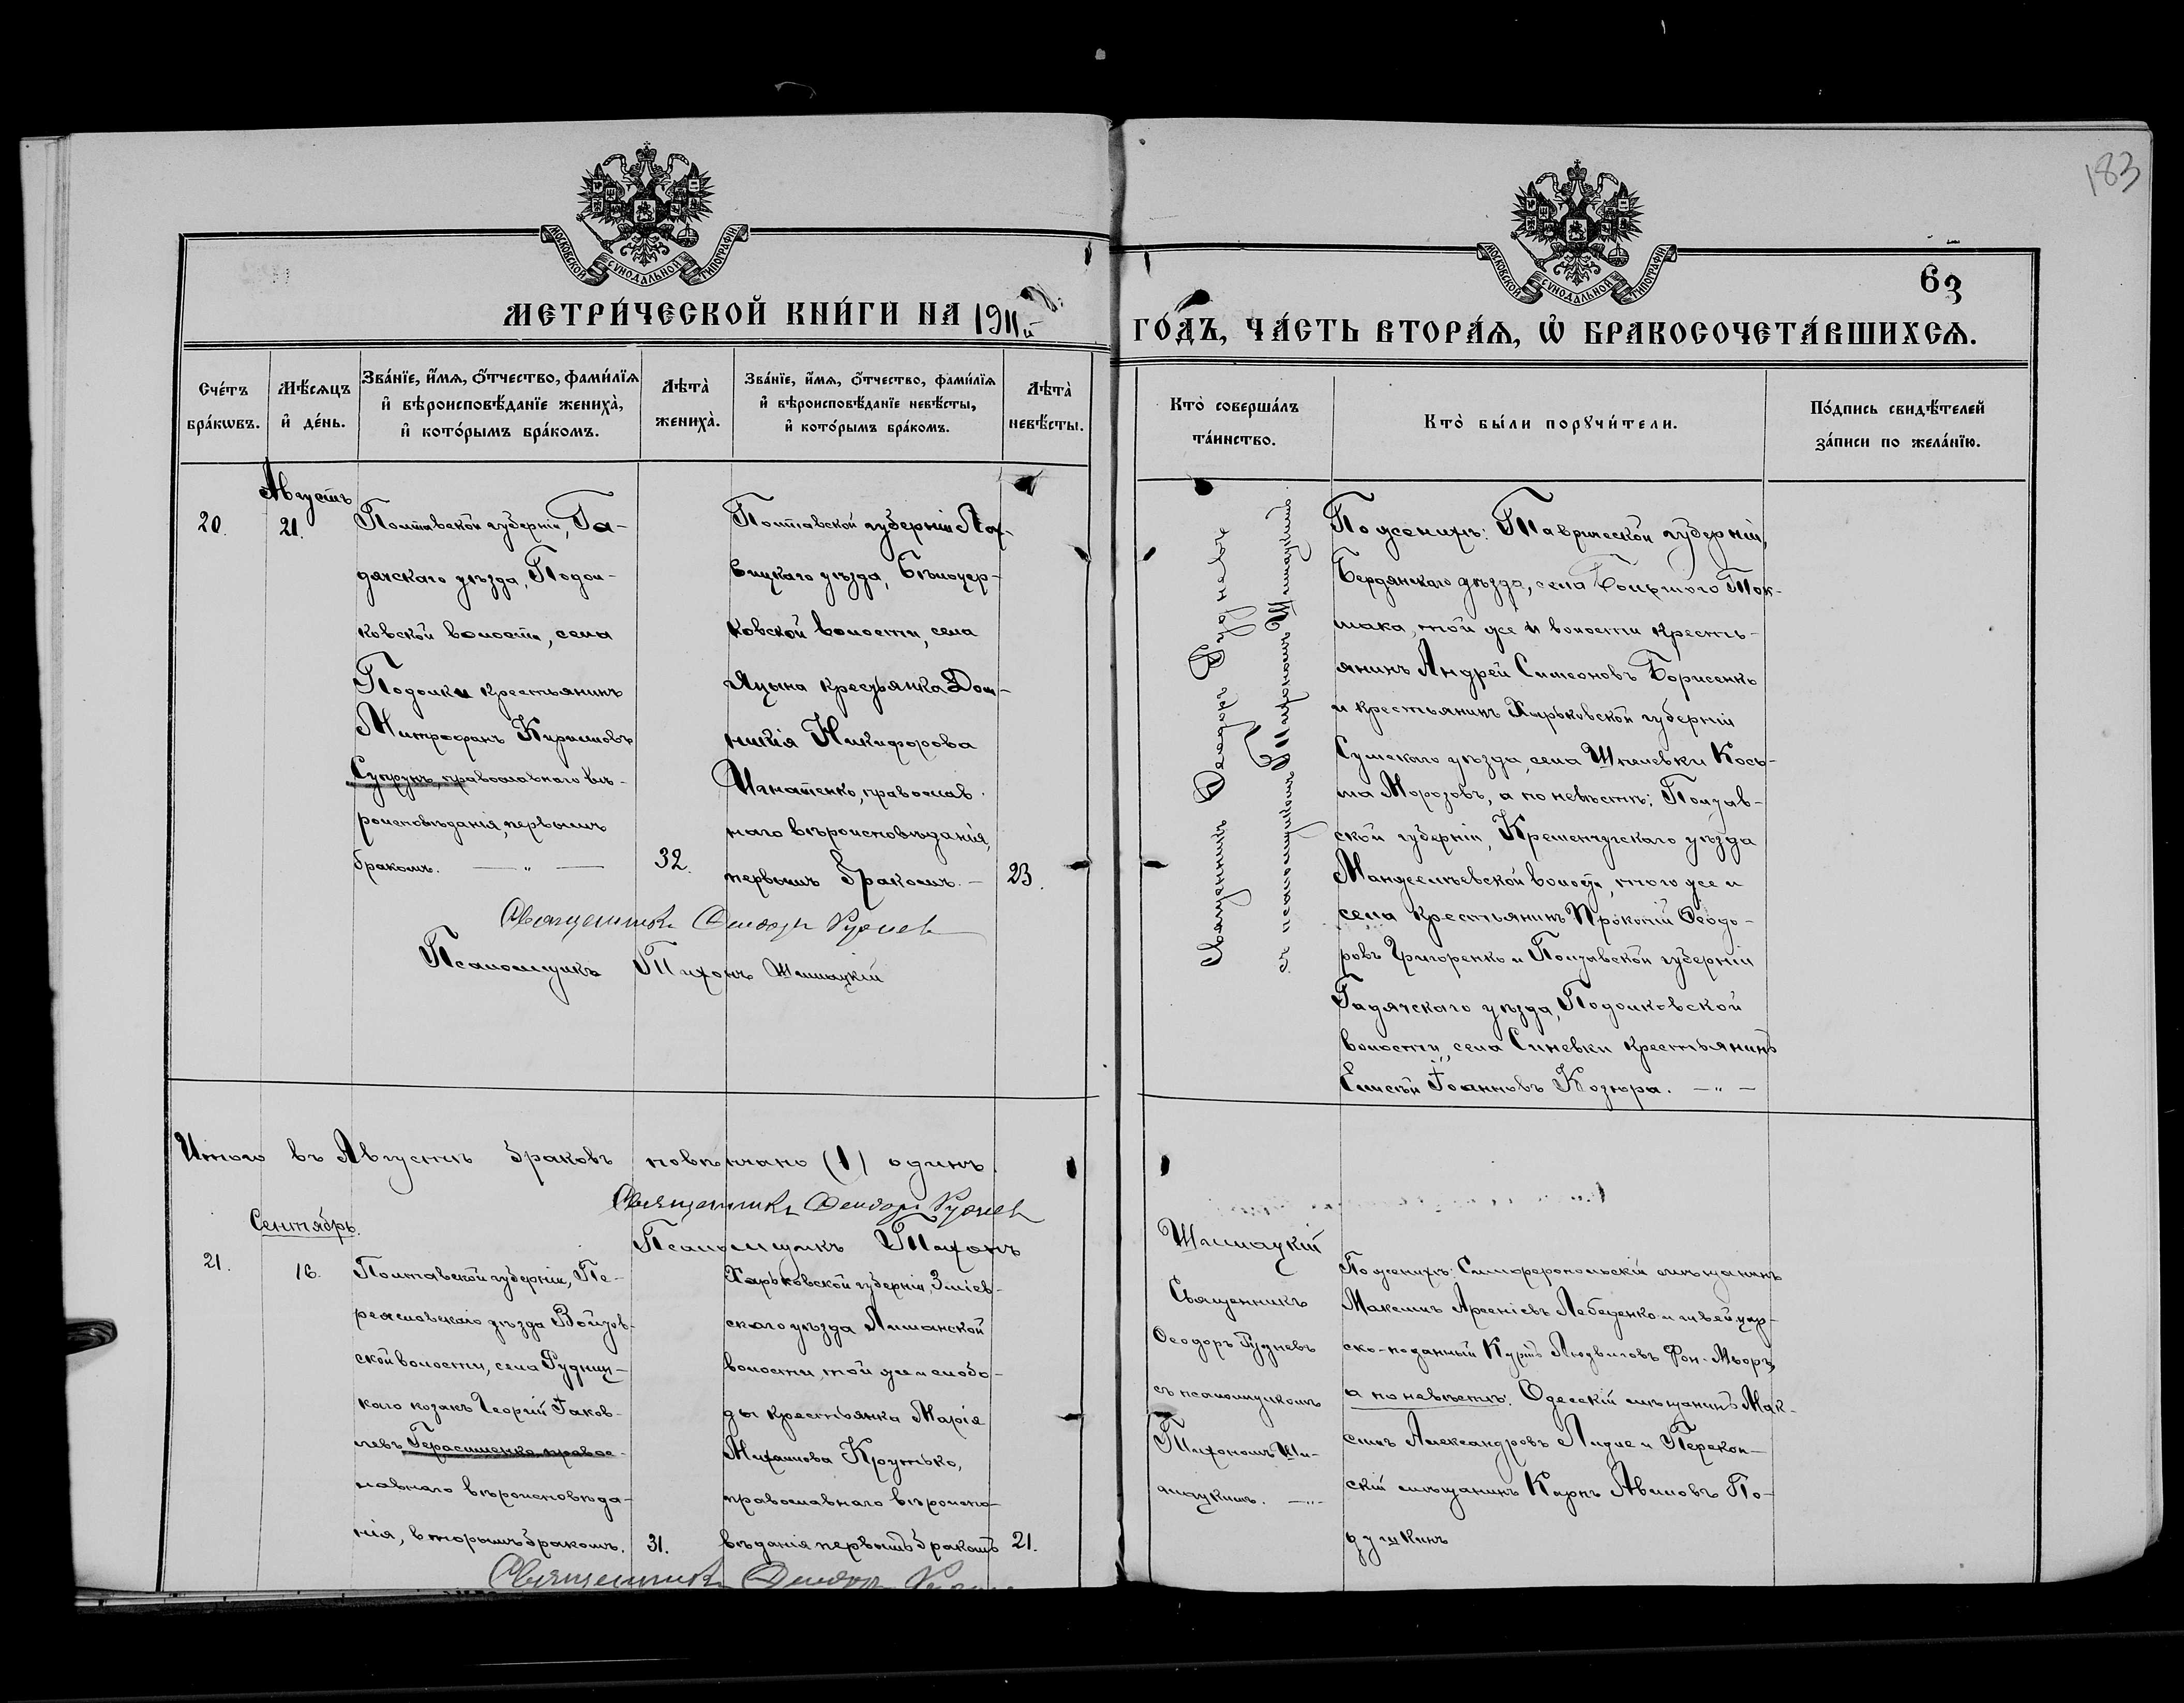 183
МОСКОВСКОЙ СУНОДАЛЬНОЙ ТИПОГРАФІИ
МОСКОВСКОЙ СУНОДАЛЬНОЙ ТИПОГРАФІИ
63
МЕТРИ́ЧЕСКОЙ КНИ́ГИ НА 1911й
ГО́ДЪ, ЧА́СТЬ ВТОРА́Я, Ѡ БРАКОСОЧЕТА́ВШИХСЯ.
Сче́тъ бра́кѡвъ.
Мѣ́сяцъ и де́нь.
Зва́нїе, и́мя, о́тчество, фами́лїя и вѣроисповѣ́данїе жениха̀, и кото́рымъ бра́комъ.
Лѣта̀ жениха̀.
Зва́нїе, и́мя, о́тчество, фами́лїя и вѣроисповѣ́данїе невѣ́сты, и кото́рымъ бра́комъ.
Лѣта̀ невѣ́сты.
Кто̀ соверша́лъ та́инство.
Кто̀ бы́ли порꙋчи́тели.
По́дпись свидѣ́телей за́писи по жела́нїю.
Августъ
20.
21.
Полтавской губерніи, Га-
дячскаго уѣзда, Подол-
ковской волости, села
Подолки крестьянинъ
Митрофанъ Кирилловъ
Супрунъ, православнаго вѣ-
роисповѣданія, первымъ
бракомъ. — „ —
32.
Полтавской губерніи Лох-
вицкаго уѣзда, Бѣлоцер-
ковской волости, села
Яцына крестьянка Дом-
никія Никифорова
Игнатенко, православ-
наго вѣроисповѣданія,
первымъ бракомъ. —
23.
Священникъ Ѳеодоръ Рудневъ
Псаломщикъ Тихонъ Шишацкій
Священникъ Ѳеодоръ Рудневъ
съ псаломщикомъ Тихономъ Шишацкимъ
По женихѣ: Таврической губерніи,
Бердянскаго уѣзда, села Большого Ток-
мака, той же и волости кресть-
янинъ Андрей Симеоновъ Борисенко
и крестьянинъ Харьковской губерніи
Сумскаго уѣзда, села Шпилевки Кось-
ма Морозовъ, а по невѣстѣ: Полтав-
ской губерніи, Кременчугскаго уѣзда
Манджелѣевской волости, того же и
села крестьянинъ Прокопій Ѳеодо-
ровъ Григоренко и Полтавской губерніи
Гадячскаго уѣзда, Подолковской
волости, села Синевки крестьянинъ
Елисѣй Іоанновъ Козюра. — „ —
Итого въ Августѣ браковъ повѣнчано (1) одинъ.
Священникъ Ѳеодоръ Рудневъ
Псаломщикъ Тихонъ
Шишацкій
Сентябрь.
21.
16.
Полтавской губерніи, Пе-
реяславскаго уѣзда Войтов-
ской волости, села Рудниц-
каго козакъ Георгій Іаков-
левъ Герасименко, правос-
лавнаго вѣроисповѣда-
нія, вторымъ бракомъ.
31.
Харьковской губерніи, Зміев-
скаго уѣзда Лиманской
волости, той же и слобо-
ды крестьянка Марія
Михаилова Крутько,
православнаго вѣроиспо-
вѣданія первымъ бракомъ
21.
Священникъ
Ѳеодоръ Рудневъ
съ псаломщикомъ
Тихономъ Ши-
шацкимъ. — „ —
По женихѣ: Симферопольскій мѣщанинъ
Максимъ Арсеніевъ Лебеденко и швейцар-
ско-поданный Куртъ Людвиговъ Фон-Мооръ,
а по невѣстѣ: Одесскій мѣщанинъ Мак-
симъ Александровъ и Перекоп-
скій мѣщанинъ Карпъ По-
душкинъ
Священникъ Ѳеодоръ Рудневъ